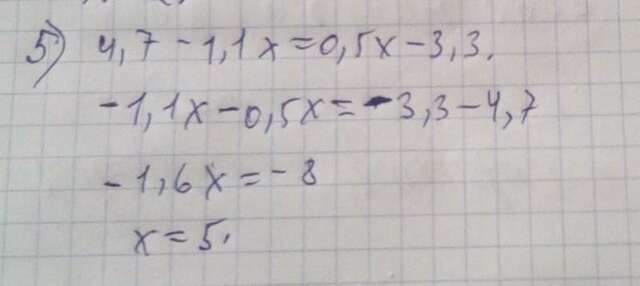 5) 4,7 - 1,1x = 0,5x - 3,3.
-1,1x - 0,5x = -3,3 - 4,7
-1,6x = -8
x = 5.